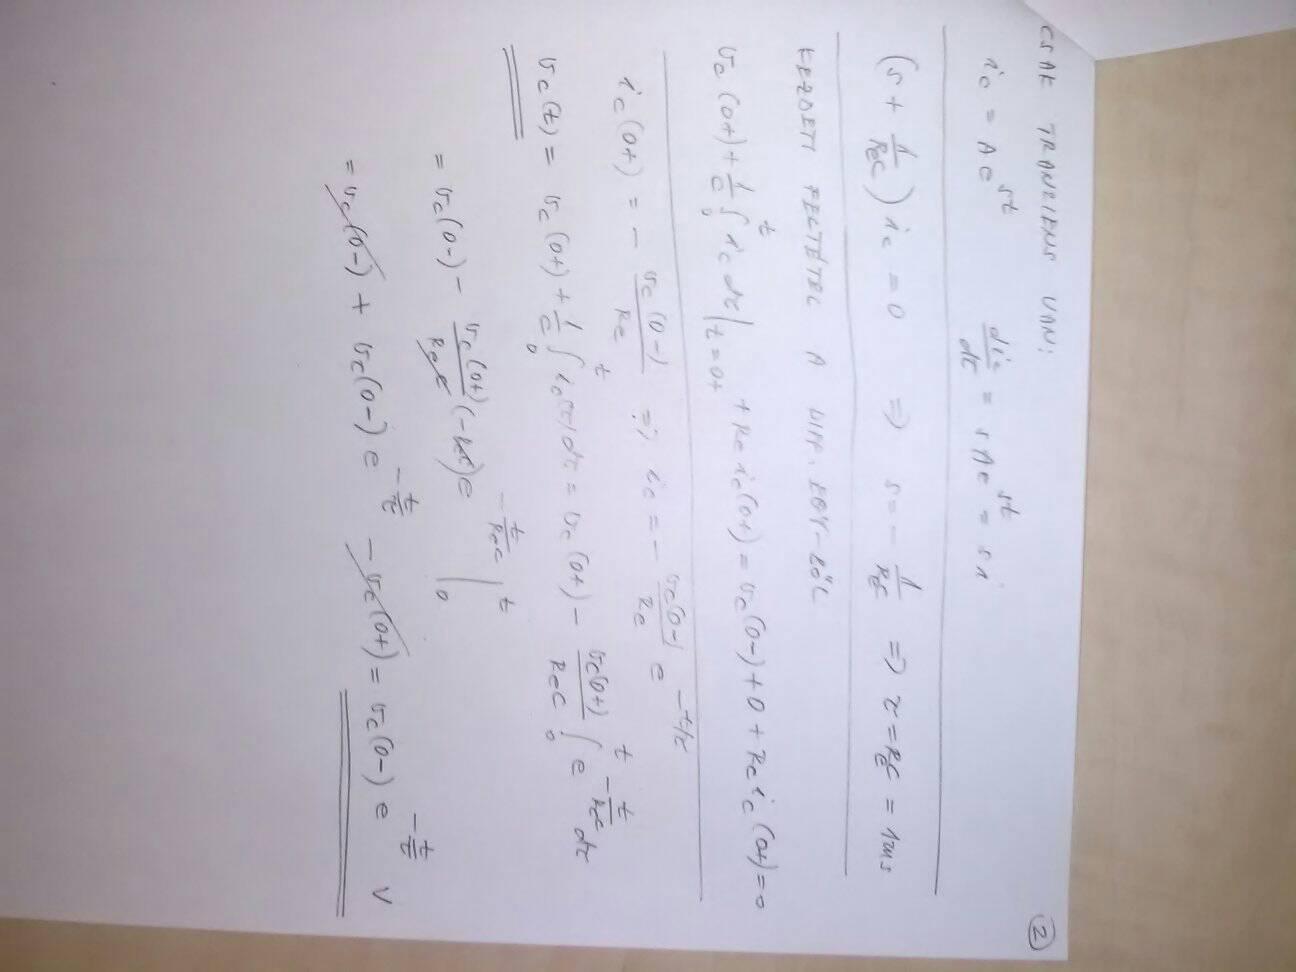 ②
CSAK TRANZIENS VAN:
i_c = A e^{st}    di_c/dt = sAe^{st} = s i
(s + 1/(R_eC)) i_c = 0 ⇒ s = -1/(R_eC) ⇒ τ = R_eC = 1ms
KEZDETI FELTÉTEL A DIFF. EGY-BŐL
v_c(0+) + 1/C ∫_0^t i_c dτ |_{t=0+} + R_e i_c(0+) = v_c(0-) + 0 + R_e i_c(0+) = 0
i_c(0+) = - v_c(0-)/R_e ⇒ i_c = - v_c(0-)/R_e e^{-t/τ}
v_c(t) = v_c(0+) + 1/C ∫_0^t i_c(τ) dτ = v_c(0+) - v_c(0+)/(R_eC) ∫_0^t e^{-t/(R_eC)} dτ
= v_c(0-) - v_c(0+)/(R_eC) (-R_eC) e^{-t/(R_eC)} |_0^t
= v_c(0-) + v_c(0-) e^{-t/τ} - v_c(0+) = v_c(0-) e^{-t/τ} V